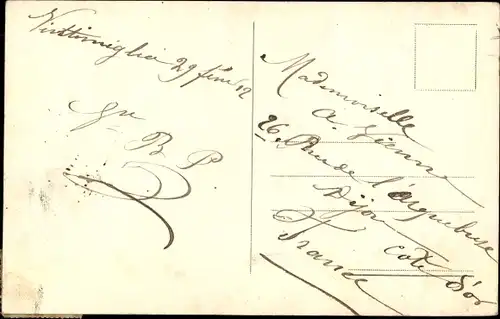 Vintimiglia 29
B P
Mademoiselle
A.
26 Rue de l'Arquebuse
Dijon
Cote d'or
France